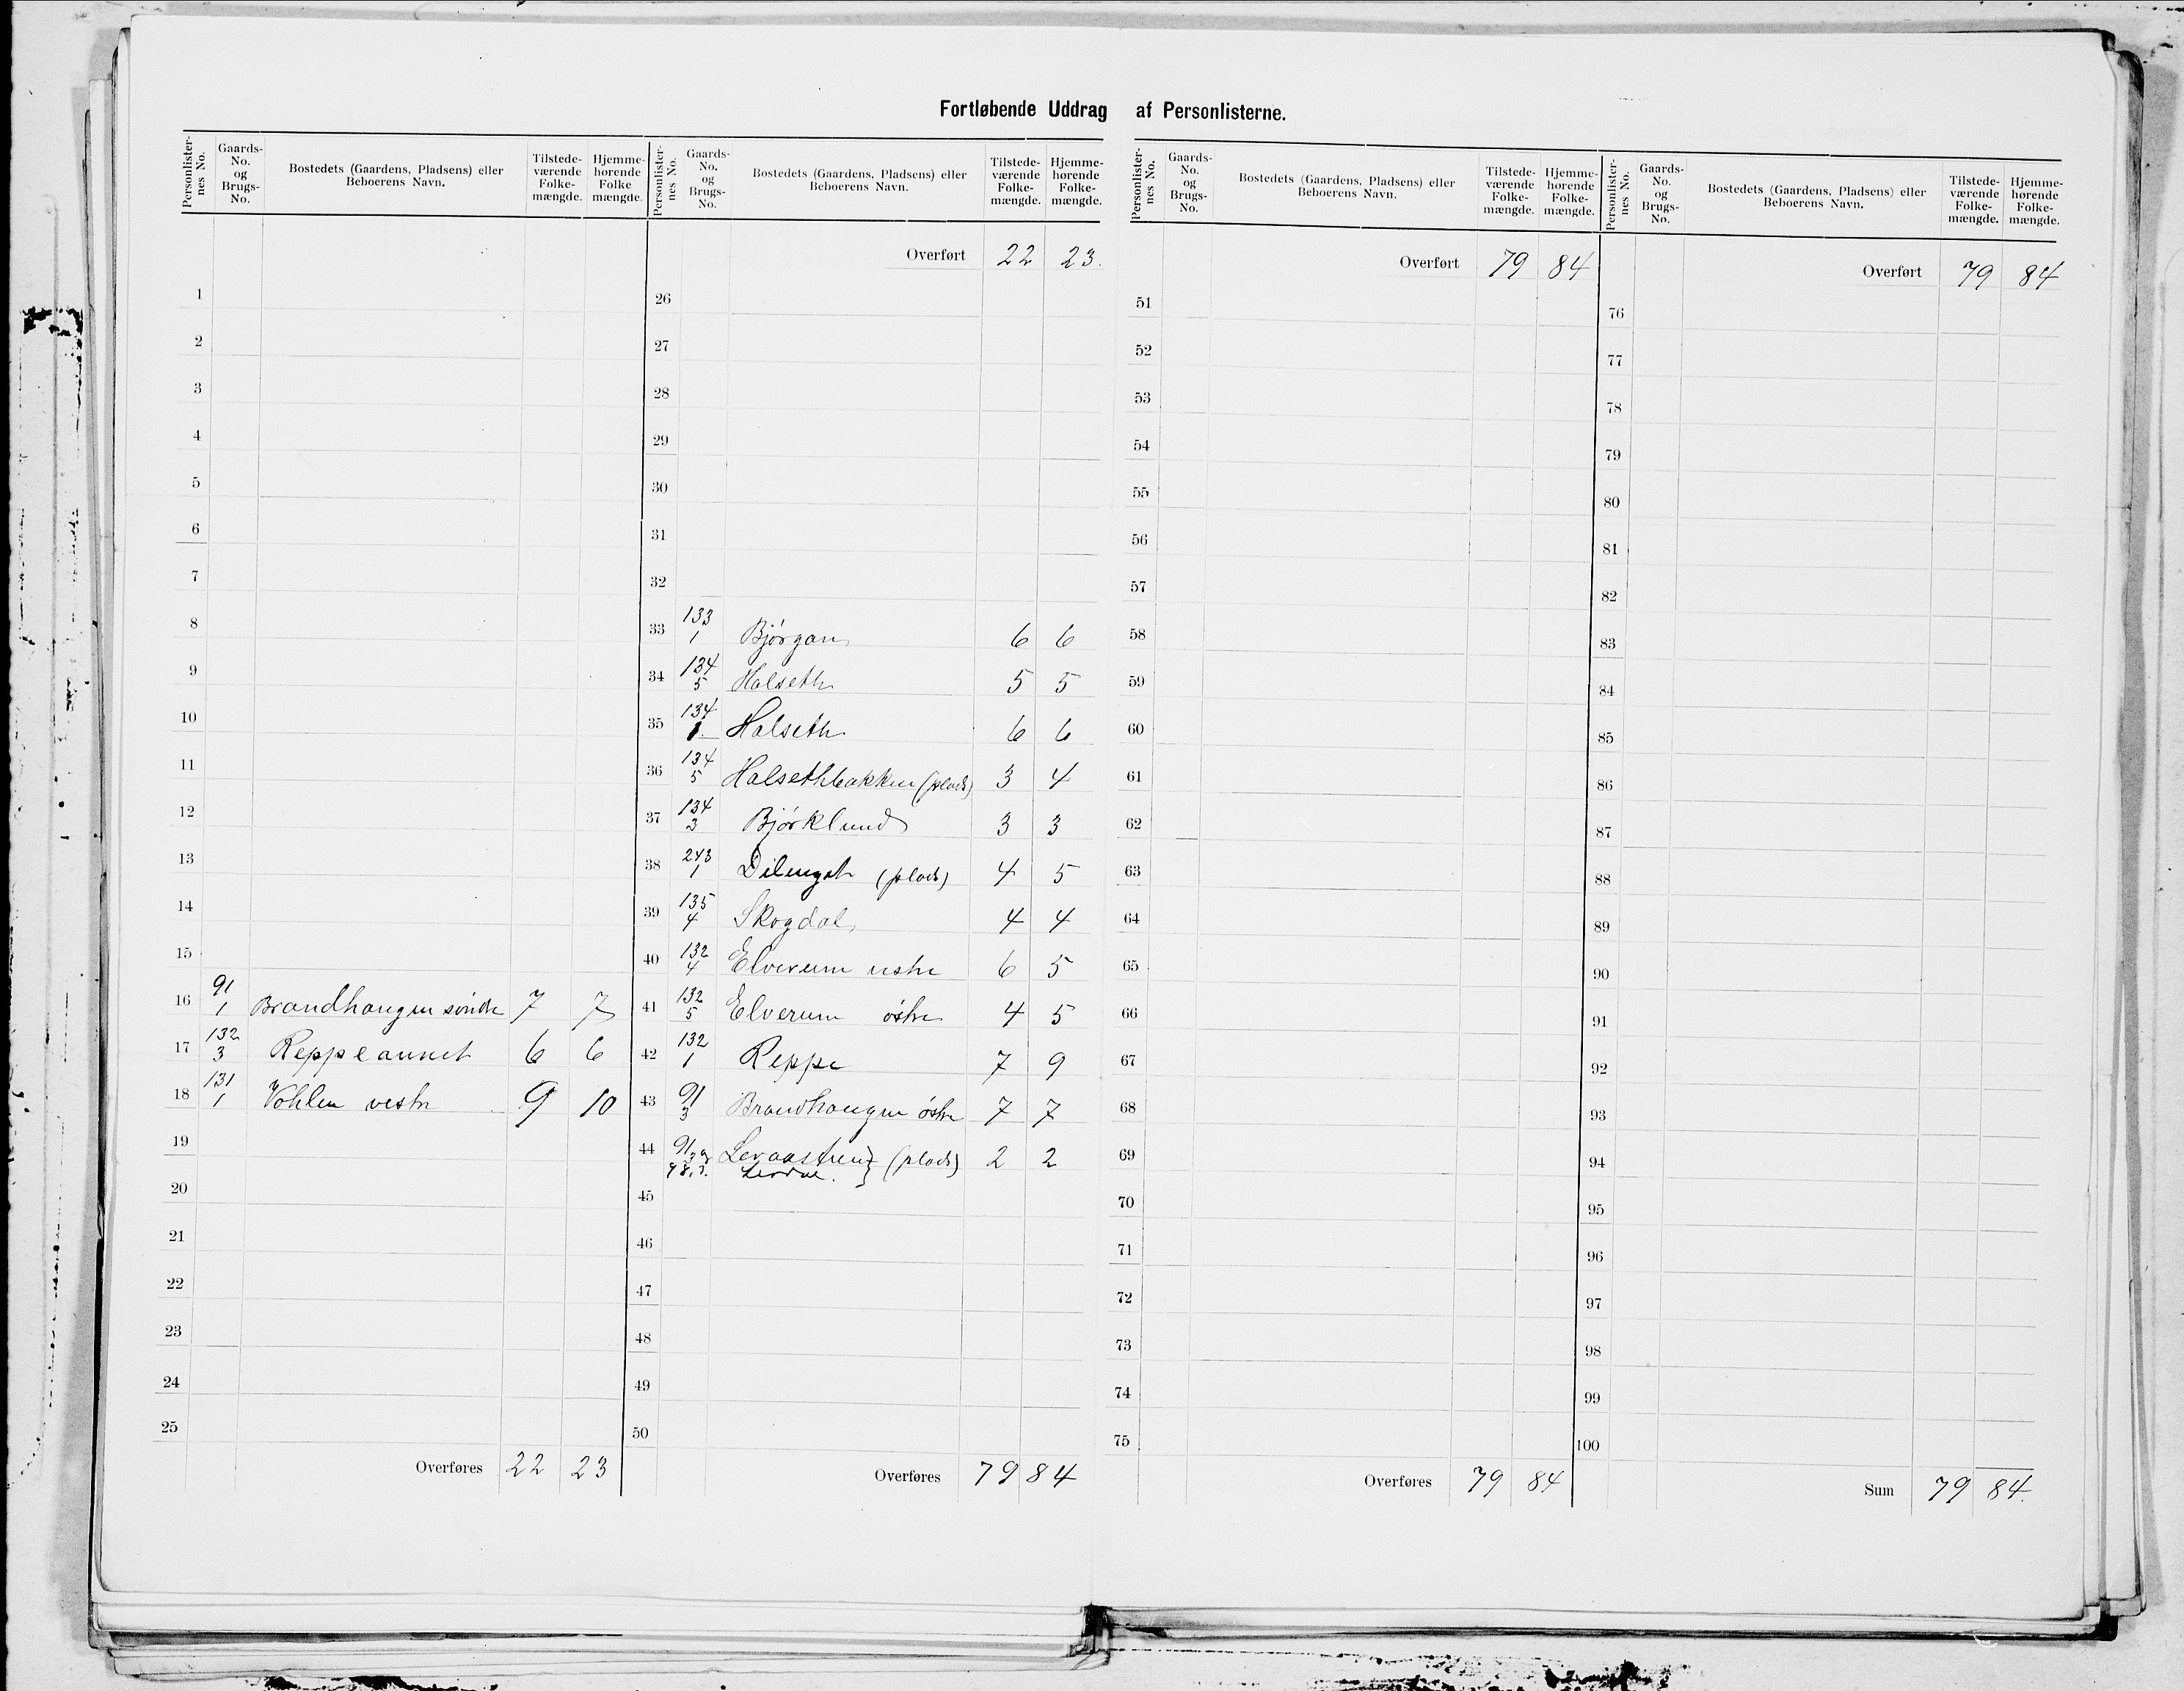 Fortløbende Uddrag af Personlisterne.
Personlister-nes No. | Gaards-No. og Brugs-No. | Bostedets (Gaardens, Pladsens) eller Beboerens Navn. | Tilstede-værende Folke-mængde. | Hjemme-hørende Folke mængde.
1
2
3
4
5
6
7
8
9
10
11
12
13
14
15
16 91/1 Brandhaugen søndre 7 7
17 132/3 Reppeaunet 6 6
18 131/1 Vohlen vestre 9 10
19
20
21
22
23
24
25
Overføres 22 23
Personlister-nes No. | Gaards-No. og Brugs-No. | Bostedets (Gaardens, Pladsens) eller Beboerens Navn. | Tilstede-værende Folke-mængde. | Hjemme-hørende Folke-mængde.
Overført 22 23.
26
27
28
29
30
31
32
33 133/1 Bjørgan 6 6
34 134/5 Halseth 5 5
35 134/1. Halseth 6 6
36 134/5 Halsethbakken (plads) 3 4
37 134/3 Bjørklund 3 3
38 243/1 (plads) 4 5
39 135/4 Skogdal 4 4
40 132/4 Elverum 6 5
41 132/5 Elverum østre 4 5
42 132/1 Reppe 7 9
43 91/3 Brandhaugen østre 7 7
44 (plads) 2 2
45
46
47
48
49
50
Overføres 79 84
Personlister-nes No. | Gaards-No. og Brugs-No. | Bostedets (Gaardens, Pladsens) eller Beboerens Navn. | Tilstede-værende Folke-mængde. | Hjemme-hørende Folke-mængde.
Overført 79 84
51
52
53
54
55
56
57
58
59
60
61
62
63
64
65
66
67
68
69
70
71
72
73
74
75
Overføres 79 84
Personlister-nes No. | Gaards-No. og Brugs-No. | Bostedets (Gaardens, Pladsens) eller Beboerens Navn. | Tilstede-værende Folke-mængde. | Hjemme-hørende Folke-mængde.
Overført 79 84
76
77
78
79
80
81
82
83
84
85
86
87
88
89
90
91
92
93
94
95
96
97
98
99
100
Sum 79 84.